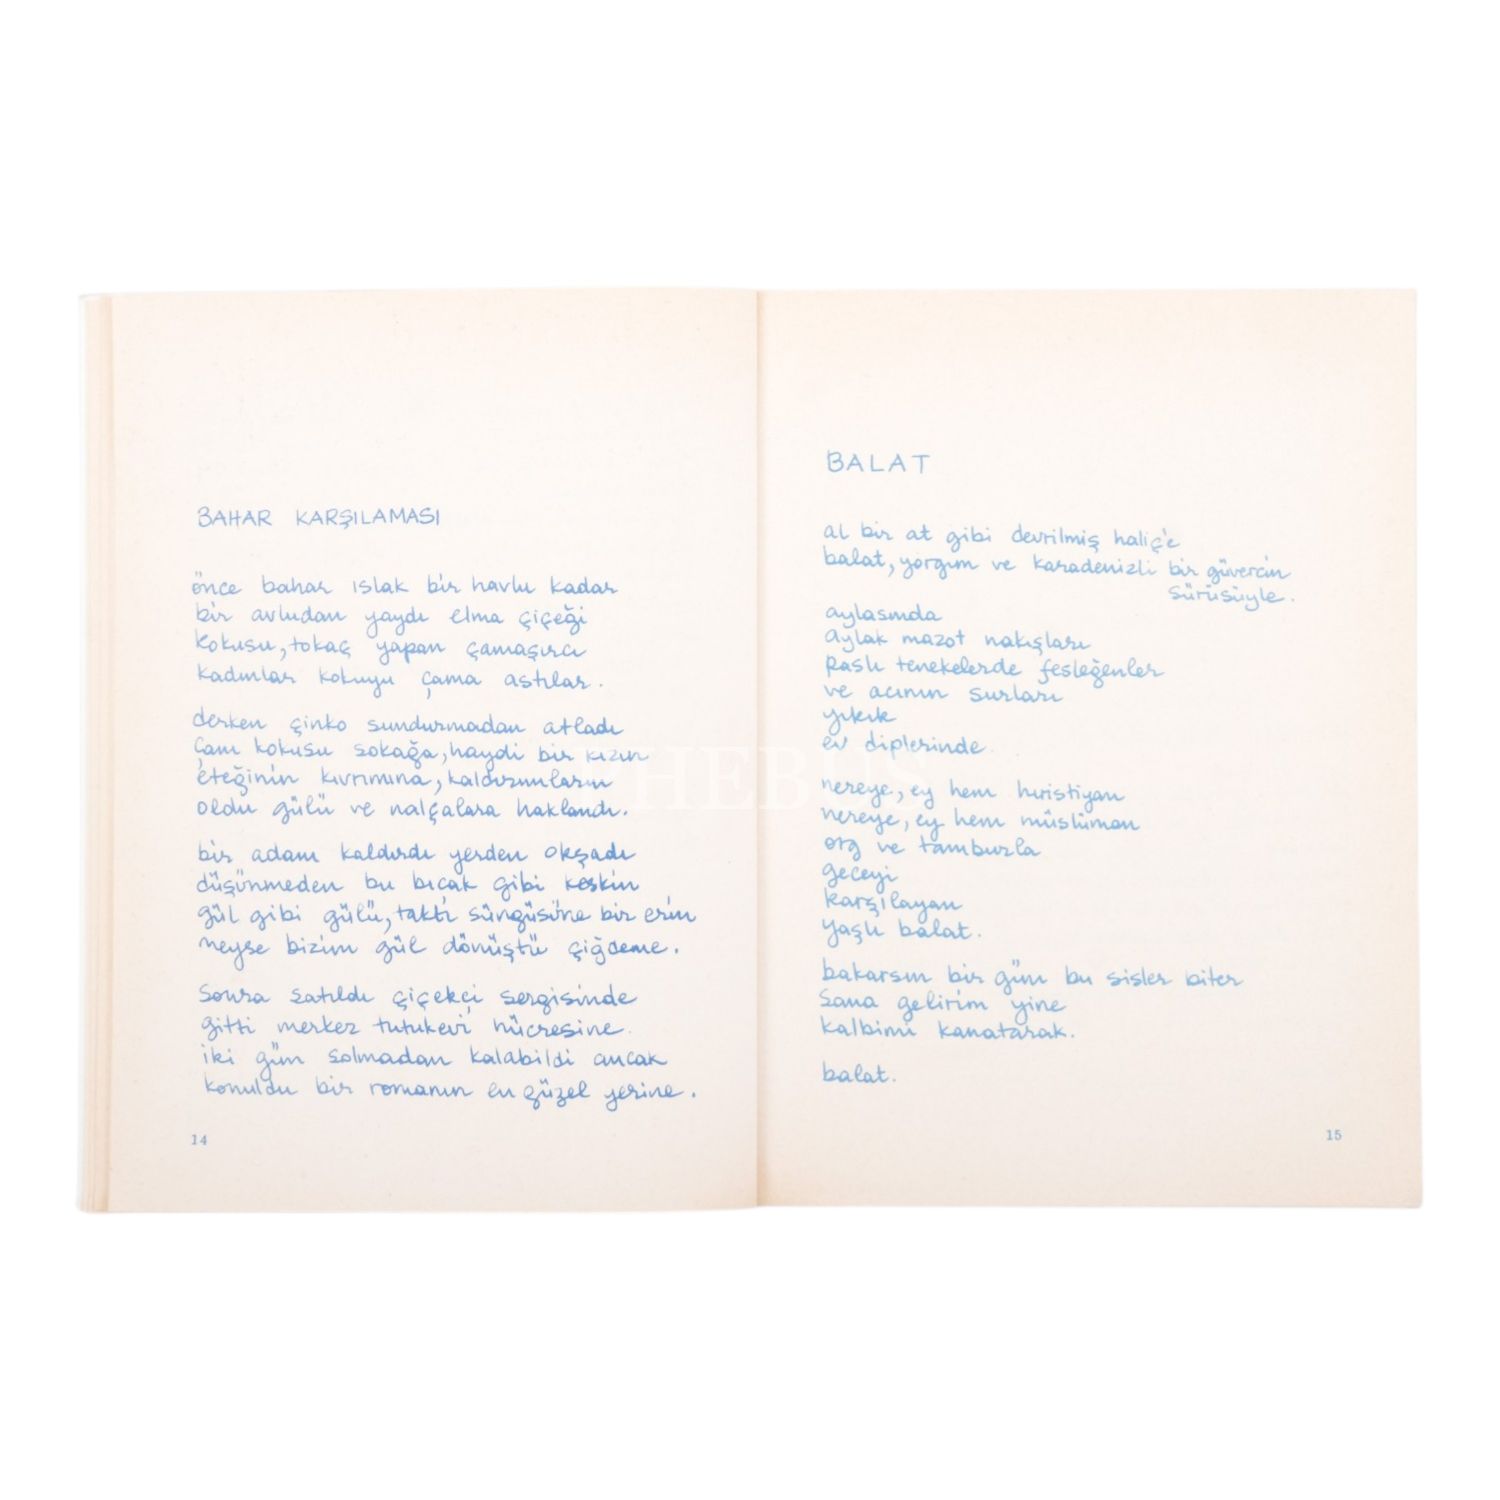 BAHAR KARŞILAMASI
önce bahar ıslak bir havlu kadar
bir avludan yaydı elma çiçeği
kokusu, tokaç yapan çamaşırcı
kadınlar kokuyu çama astılar.
derken çinko sundurmadan atladı
çam kokusu sokağa, haydi bir kızın
eteğinin kıvrımına, kaldırımların
oldu gülü ve nalçalara haklandı.
bir adam kaldırdı yerden okşadı
düşünmeden bu bıcak gibi keskin
gül gibi gülü, taktı süngüsüne bir erin
neyse bizim gül dönüştü çiğdeme.
sonra satıldı çiçekçi sergisinde
gitti merkez tutukevi hücresine.
iki gün solmadan kalabildi ancak
konuldu bir romanın en güzel yerine.
14
BALAT
al bir at gibi devrilmiş haliç'e
balat, yorgun ve karadenizli bir güvercin
sürüsüyle.
aylasında
aylak mazot nakışları
paslı tenekelerde fesleğenler
ve acının surları
yıkık
ev diplerinde.
nereye, ey hem hıristiyan
nereye, ey hem müslüman
org ve tamburla
geceyi
karşılayan
yaşlı balat.
bakarsın bir gün bu sisler biter
sana gelirim yine
kalbimi kanatarak.
balat.
15
PHEBUS